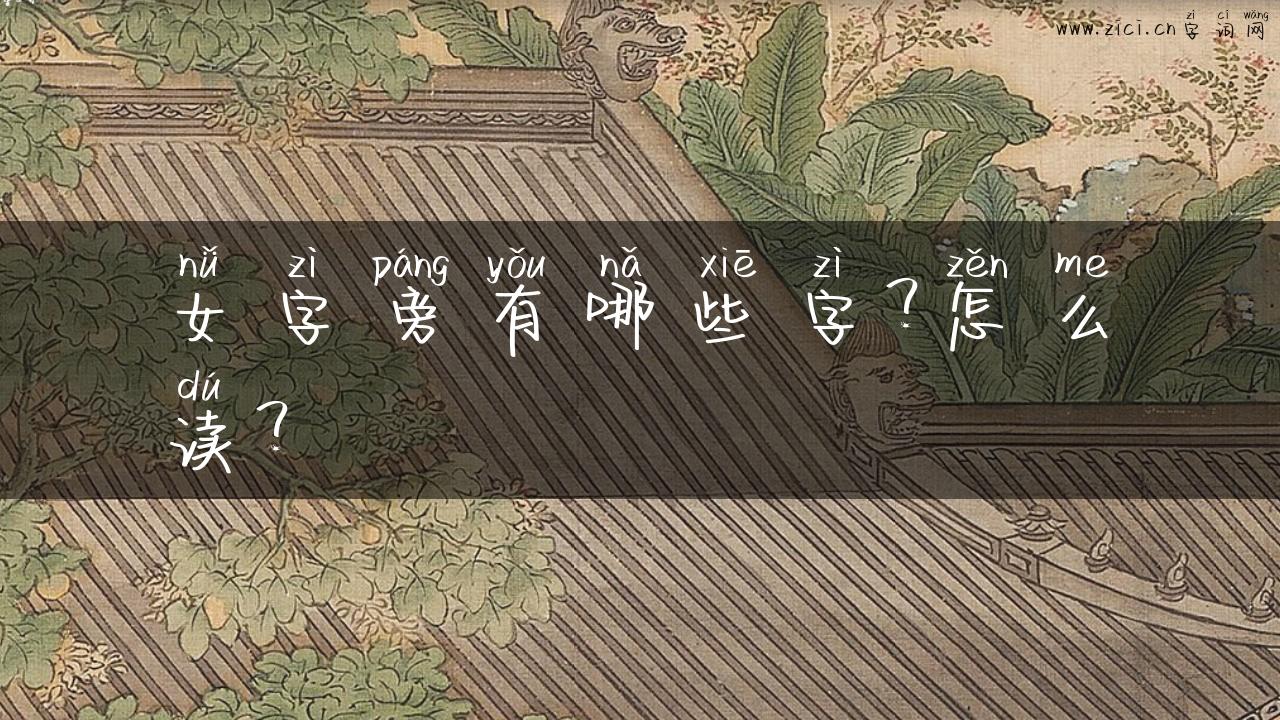 zì cí wǎng
www.zici.cn 字词网
nǚ zì páng yǒu nǎ xiē zì zěn me
女字旁有哪些字？怎么
dú
读？